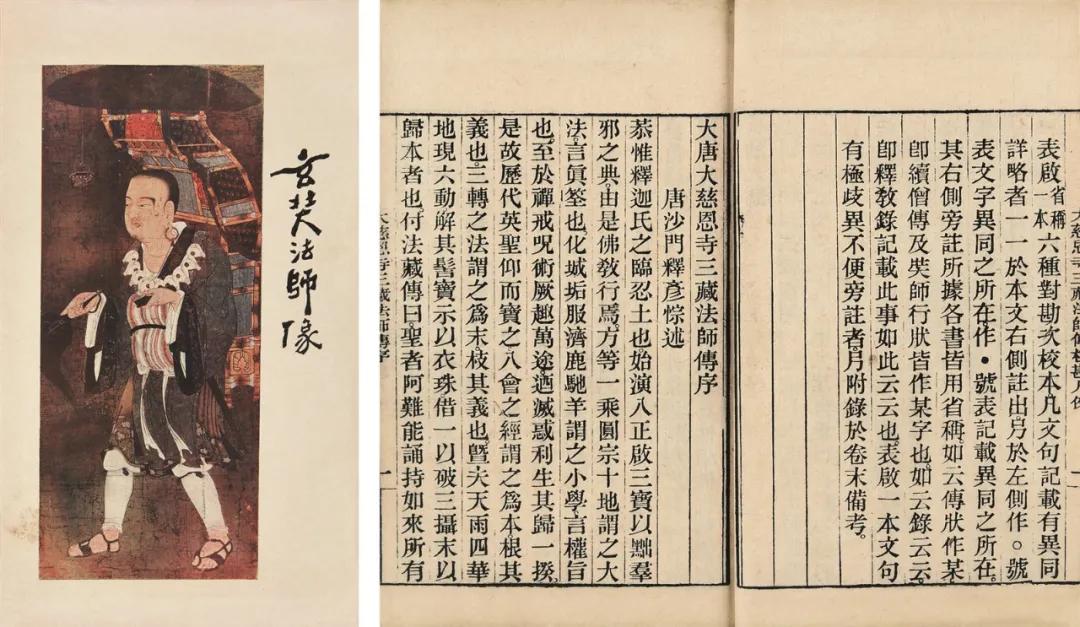 玄奘法師像
表啟省稱一本六種對勘次校本凡文句記載有異同
詳略者一一於本文右側註出。另於左側作○號
表文字異同之所在。作•號表記載異同之所在。
其右側旁註所據各書皆用省稱。如云傳狀作某
卽續僧傳及奘師行狀皆作某字也。如云錄云云
卽釋教錄記載此事如此云云也。表啟一本文句
有極歧異不便旁註者。另附錄於卷末備考。
大唐大慈恩寺三藏法師傳序
唐沙門釋彥悰述
恭惟釋迦氏之臨忍土也始演八正啟三寶以黜羣
邪之典。由是佛教行焉。方等一乘圓宗十地謂之大
法。言眞筌也。化城垢服濟鹿馳羊謂之小學。言權旨
也。至於禪戒呪術厥趣萬途。迺滅惑利生其歸一揆。
是故歷代英聖仰而寶之。八會之經謂之爲本。根其
義也。三轉之法謂之爲末。枝其義也。曁夫天雨四華
地現六動。解其髻寶示以衣珠。借一以破三。攝末以
歸本者也。付法藏傳曰。聖者阿難能誦持如來所有
大慈恩寺三藏法師傳序
一